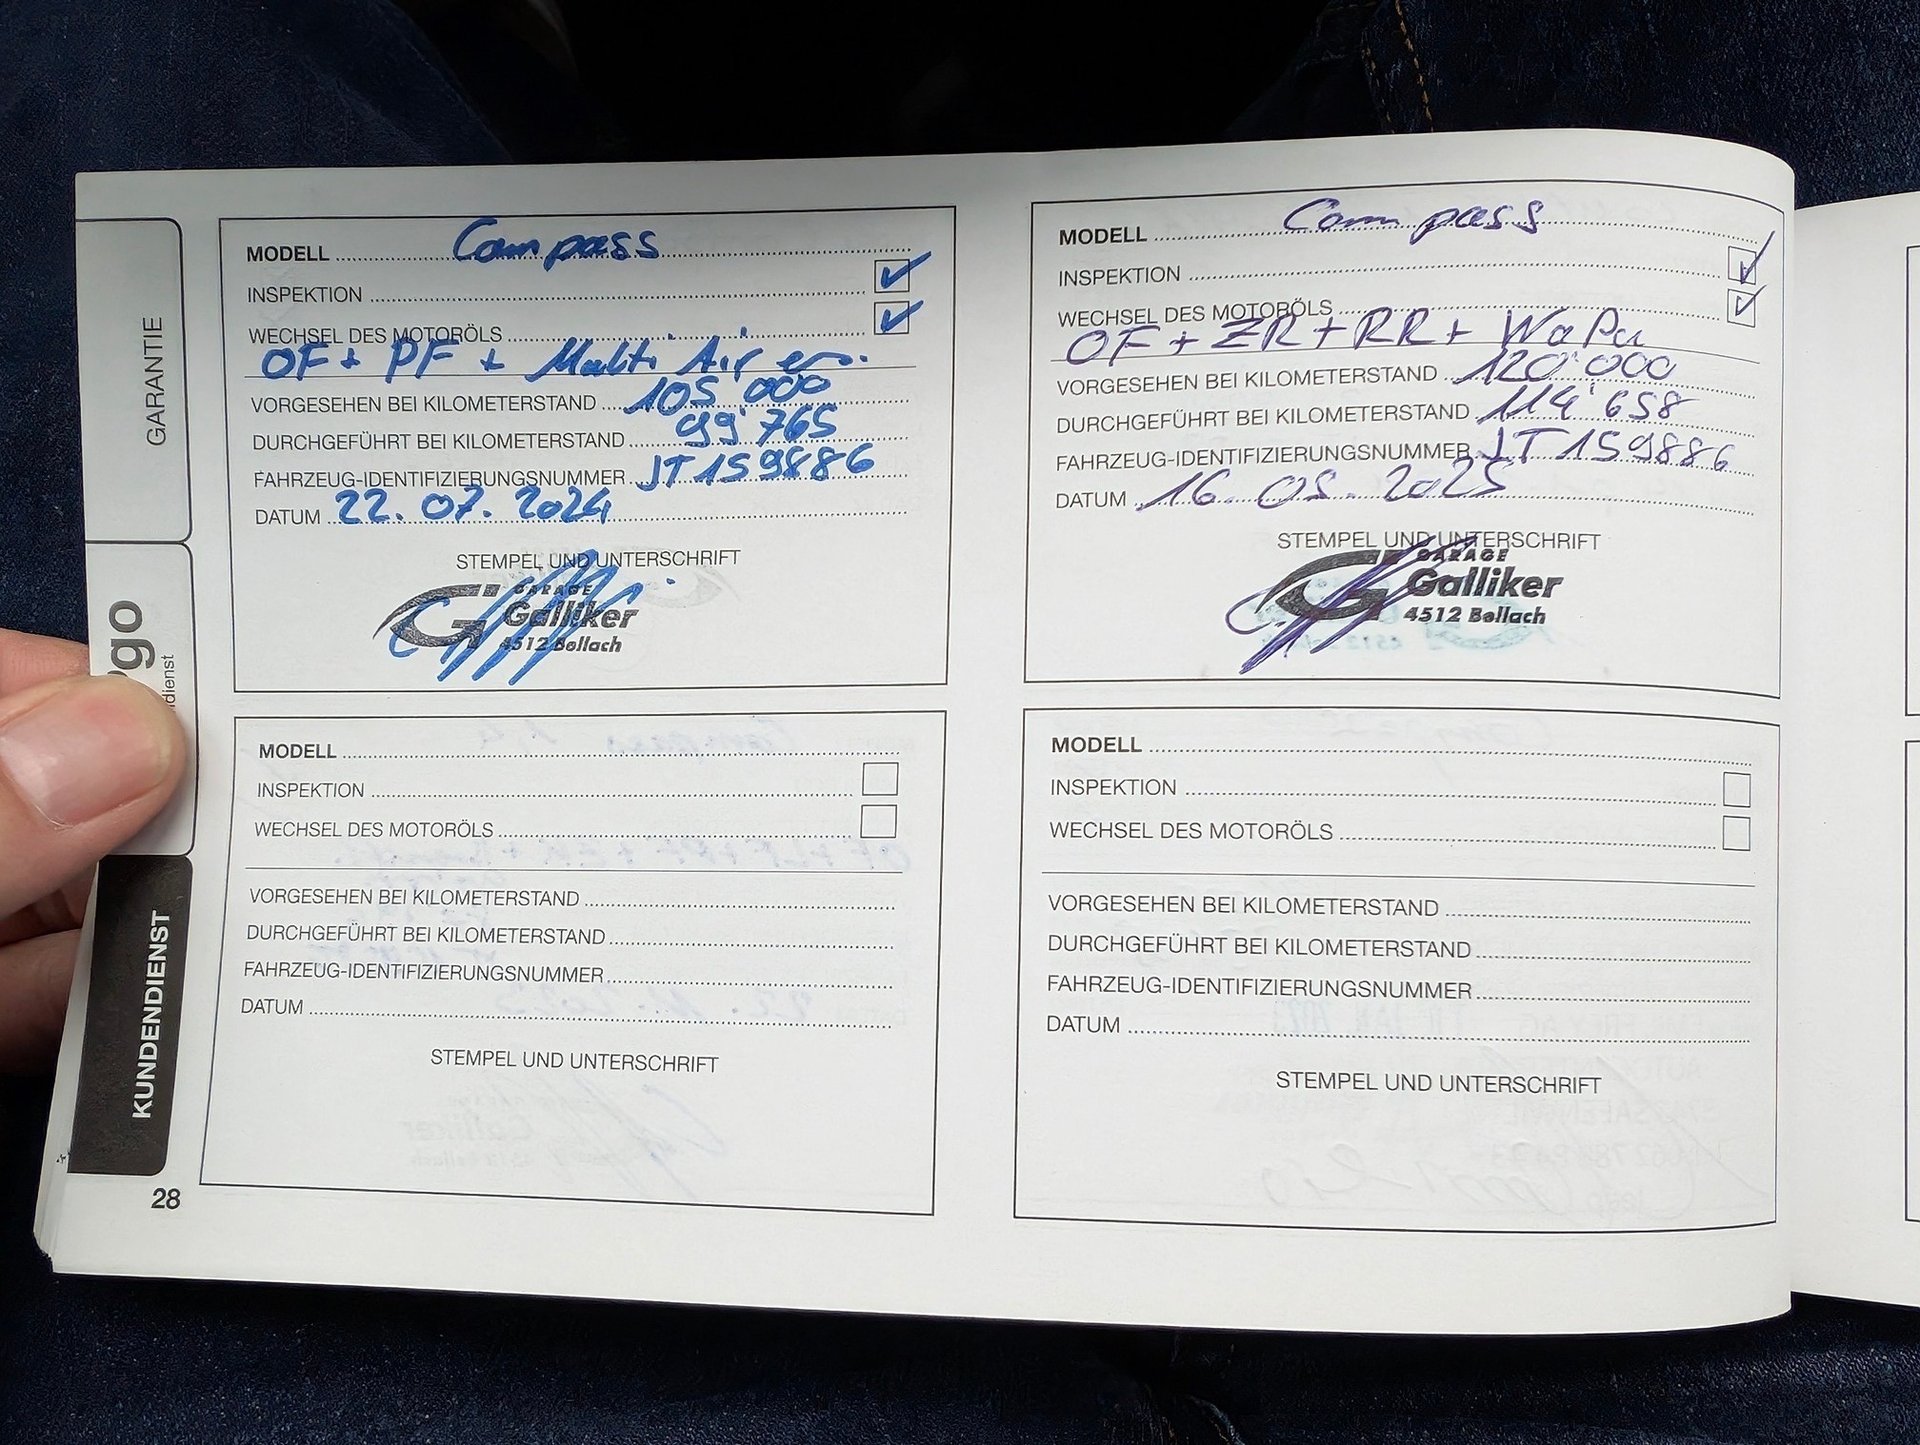 GARANTIE
MODELL Compass
INSPEKTION ✓
WECHSEL DES MOTORÖLS ✓
OF + PF + Multi Air
VORGESEHEN BEI KILOMETERSTAND 105'000
DURCHGEFÜHRT BEI KILOMETERSTAND 99'765
FAHRZEUG-IDENTIFIZIERUNGSNUMMER JT159886
DATUM 22.07.2024
STEMPEL UND UNTERSCHRIFT
GARAGE
Galliker
4512 Bellach
MODELL Compass
INSPEKTION ✓
WECHSEL DES MOTORÖLS ✓
OF + ZR + RR + WaPu
VORGESEHEN BEI KILOMETERSTAND 120'000
DURCHGEFÜHRT BEI KILOMETERSTAND 114'658
FAHRZEUG-IDENTIFIZIERUNGSNUMMER JT159886
DATUM 16.05.2025
STEMPEL UND UNTERSCHRIFT
GARAGE
Galliker
4512 Bellach
MODELL
INSPEKTION
WECHSEL DES MOTORÖLS
VORGESEHEN BEI KILOMETERSTAND
DURCHGEFÜHRT BEI KILOMETERSTAND
FAHRZEUG-IDENTIFIZIERUNGSNUMMER
DATUM
STEMPEL UND UNTERSCHRIFT
MODELL
INSPEKTION
WECHSEL DES MOTORÖLS
VORGESEHEN BEI KILOMETERSTAND
DURCHGEFÜHRT BEI KILOMETERSTAND
FAHRZEUG-IDENTIFIZIERUNGSNUMMER
DATUM
STEMPEL UND UNTERSCHRIFT
KUNDENDIENST
28